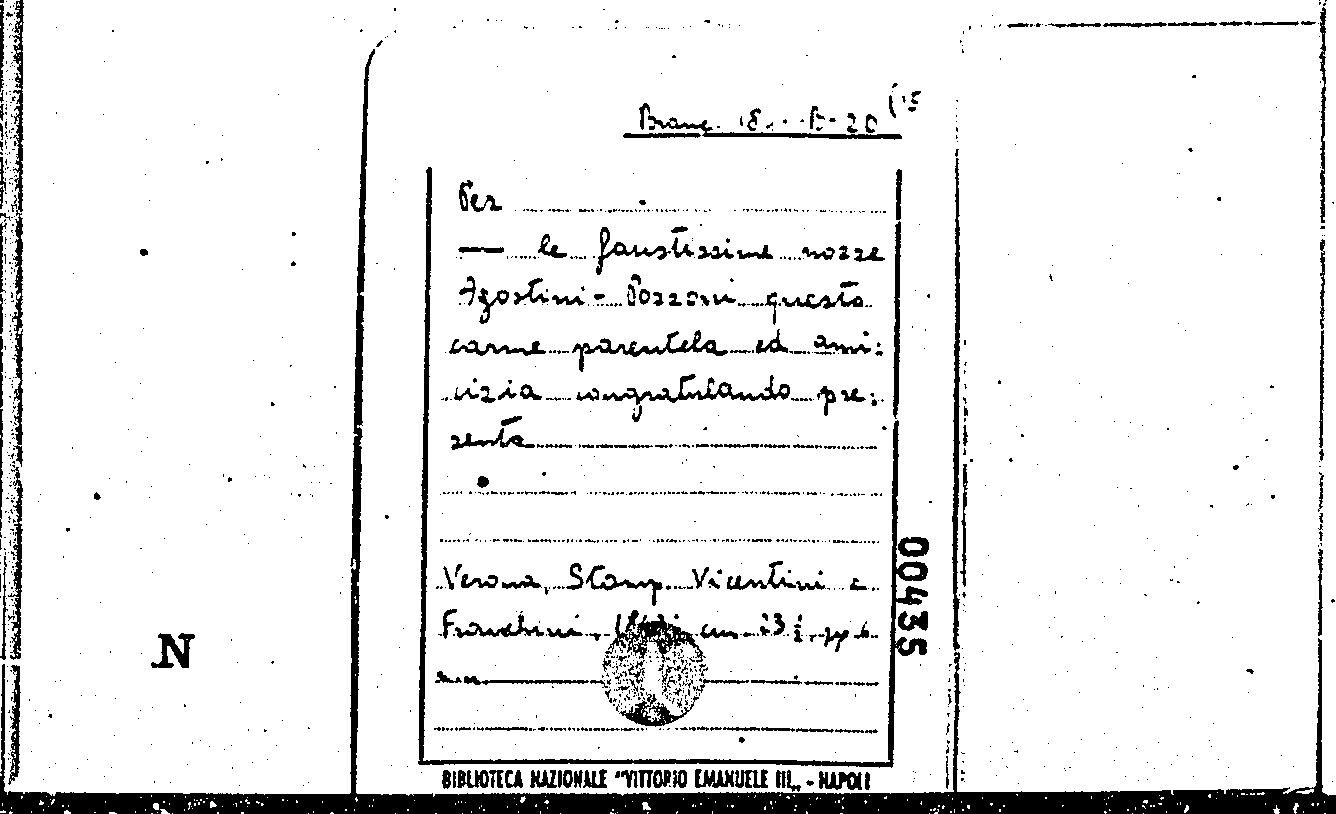 Branc. 18 B-20 (15
Per
— le faustissime nozze
Agostini - Pozzoni questo
carme parentela ed ami:
cizia congratulando pre:
senta
Verona, Stamp. Vicentini e
Franchini, cm 23 ½, pp 6
N
00435
BIBLIOTECA NAZIONALE "VITTORIO EMANUELE III„ - NAPOLI